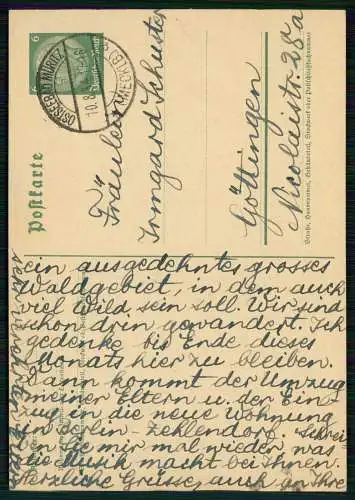 6
Deutsches Reich
OSTSEEBAD MÜRITZ
10.8.
(MECKLB)
Postkarte
Fräulein
Irmgard Schuster
Göttingen
Nicolaistr. 28a
Straße, Hausnummer, Gebäudeteil, Stockwerk oder Postschließfachnummer
ein ausgedehntes grosses
Waldgebiet, in dem auch
viel Wild sein soll. Wir sind
schon drin gewandert. Ich
gedenke bis Ende dieses
Monats hier zu bleiben.
Dann kommt der Umzug
meiner Eltern u. der Ein-
zug in die neue Wohnung
in Berlin-Zehlendorf. Schrei-
ben Sie mir mal wieder was
die Musik macht bei Ihnen.
Herzliche Grüsse, auch an Ihre